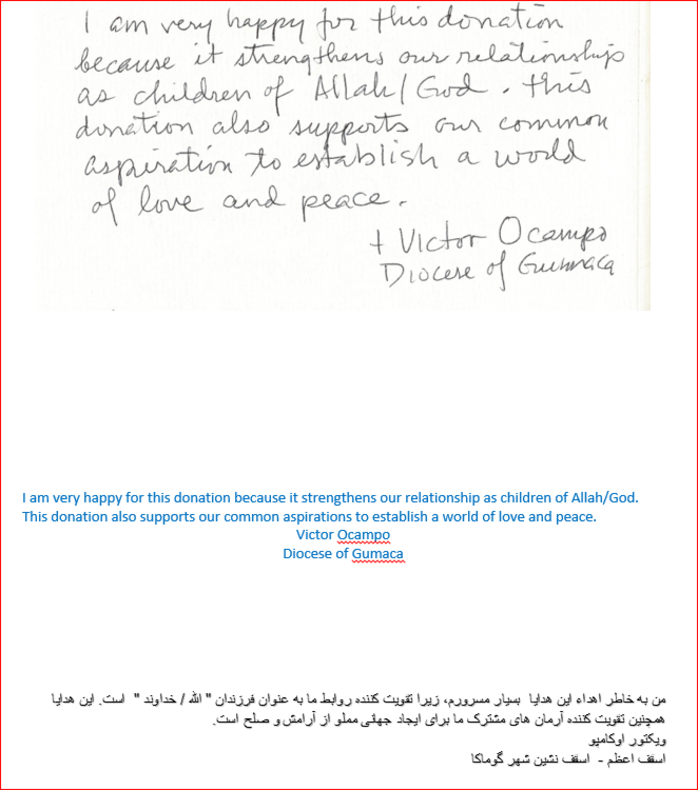 I am very happy for this donation
because it strengthens our relationship
as children of Allah/God. this
donation also supports our common
aspiration to establish a world
of love and peace.
+ Victor Ocampo
Diocese of Gumaca
I am very happy for this donation because it strengthens our relationship as children of Allah/God.
This donation also supports our common aspirations to establish a world of love and peace.
Victor Ocampo
Diocese of Gumaca
من به خاطر اهداء این هدایا بسیار مسرورم، زیرا تقویت کننده روابط ما به عنوان فرزندان " الله / خداوند " است. این هدایا
همچنین تقویت کننده آرمان های مشترک ما برای ایجاد جهانی مملو از آرامش و صلح است.
ویکتور اوکامپو
اسقف اعظم - اسقف نشین شهر گوماکا